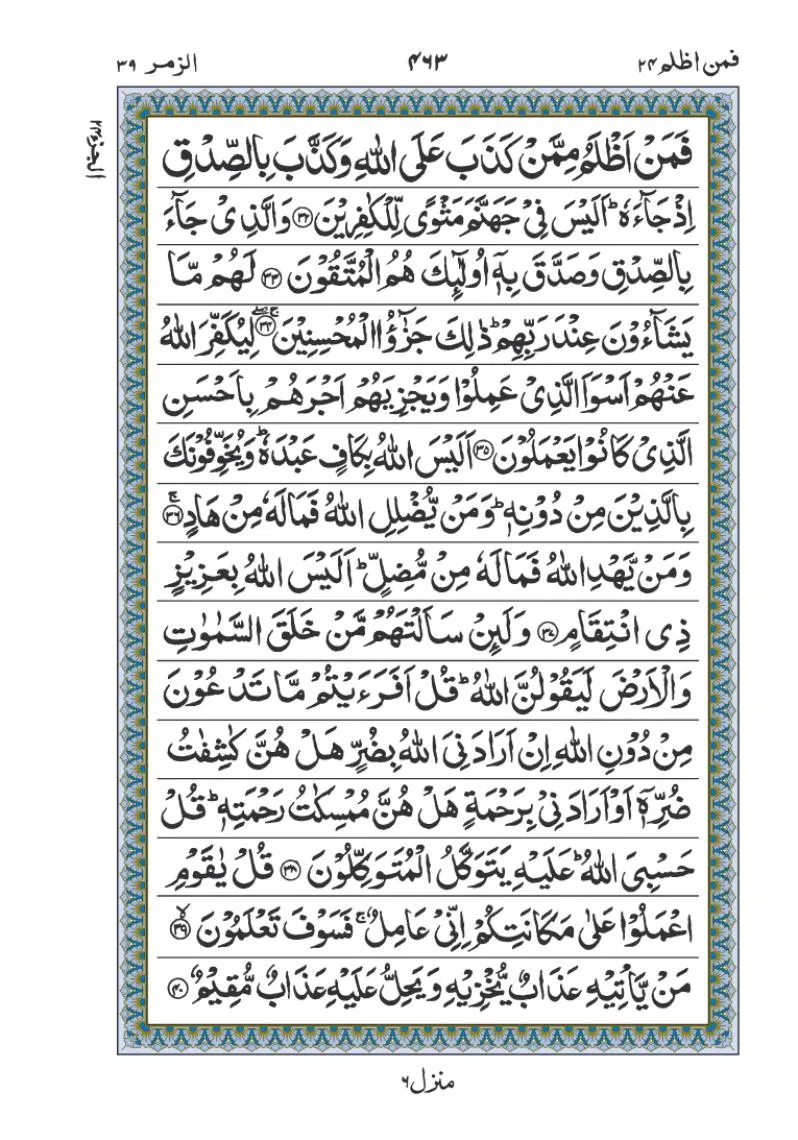 فمن اظلم ۲۴
۴۶۳
الزمر ۳۹
الجزء ۲۴
فَمَنْ اَظْلَمُ مِمَّنْ كَذَبَ عَلَى اللّٰهِ وَكَذَّبَ بِالصِّدْقِ
اِذْ جَآءَهٗ ؕ اَلَيْسَ فِيْ جَهَنَّمَ مَثْوًى لِّلْكٰفِرِيْنَ ۝۳۲ وَالَّذِيْ جَآءَ
بِالصِّدْقِ وَصَدَّقَ بِهٖٓ اُولٰٓئِكَ هُمُ الْمُتَّقُوْنَ ۝۳۳ لَهُمْ مَّا
يَشَآءُوْنَ عِنْدَ رَبِّهِمْ ؕ ذٰلِكَ جَزٰٓؤُا الْمُحْسِنِيْنَ ۝۳۴ۚۖ لِيُكَفِّرَ اللّٰهُ
عَنْهُمْ اَسْوَاَ الَّذِيْ عَمِلُوْا وَيَجْزِيَهُمْ اَجْرَهُمْ بِاَحْسَنِ
الَّذِيْ كَانُوْا يَعْمَلُوْنَ ۝۳۵ اَلَيْسَ اللّٰهُ بِكَافٍ عَبْدَهٗ ؕ وَيُخَوِّفُوْنَكَ
بِالَّذِيْنَ مِنْ دُوْنِهٖ ؕ وَمَنْ يُّضْلِلِ اللّٰهُ فَمَا لَهٗ مِنْ هَادٍ ۝۳۶ۚ
وَمَنْ يَّهْدِ اللّٰهُ فَمَا لَهٗ مِنْ مُّضِلٍّ ؕ اَلَيْسَ اللّٰهُ بِعَزِيْزٍ
ذِى انْتِقَامٍ ۝۳۷ وَلَئِنْ سَاَلْتَهُمْ مَّنْ خَلَقَ السَّمٰوٰتِ
وَالْاَرْضَ لَيَقُوْلُنَّ اللّٰهُ ؕ قُلْ اَفَرَءَيْتُمْ مَّا تَدْعُوْنَ
مِنْ دُوْنِ اللّٰهِ اِنْ اَرَادَنِيَ اللّٰهُ بِضُرٍّ هَلْ هُنَّ كٰشِفٰتُ
ضُرِّهٖٓ اَوْ اَرَادَنِيْ بِرَحْمَةٍ هَلْ هُنَّ مُمْسِكٰتُ رَحْمَتِهٖ ؕ قُلْ
حَسْبِيَ اللّٰهُ ؕ عَلَيْهِ يَتَوَكَّلُ الْمُتَوَكِّلُوْنَ ۝۳۸ قُلْ يٰقَوْمِ
اعْمَلُوْا عَلٰى مَكَانَتِكُمْ اِنِّيْ عَامِلٌ ۚ فَسَوْفَ تَعْلَمُوْنَ ۝۳۹ۙ
مَنْ يَّاْتِيْهِ عَذَابٌ يُّخْزِيْهِ وَيَحِلُّ عَلَيْهِ عَذَابٌ مُّقِيْمٌ ۝۴۰
منزل ۶